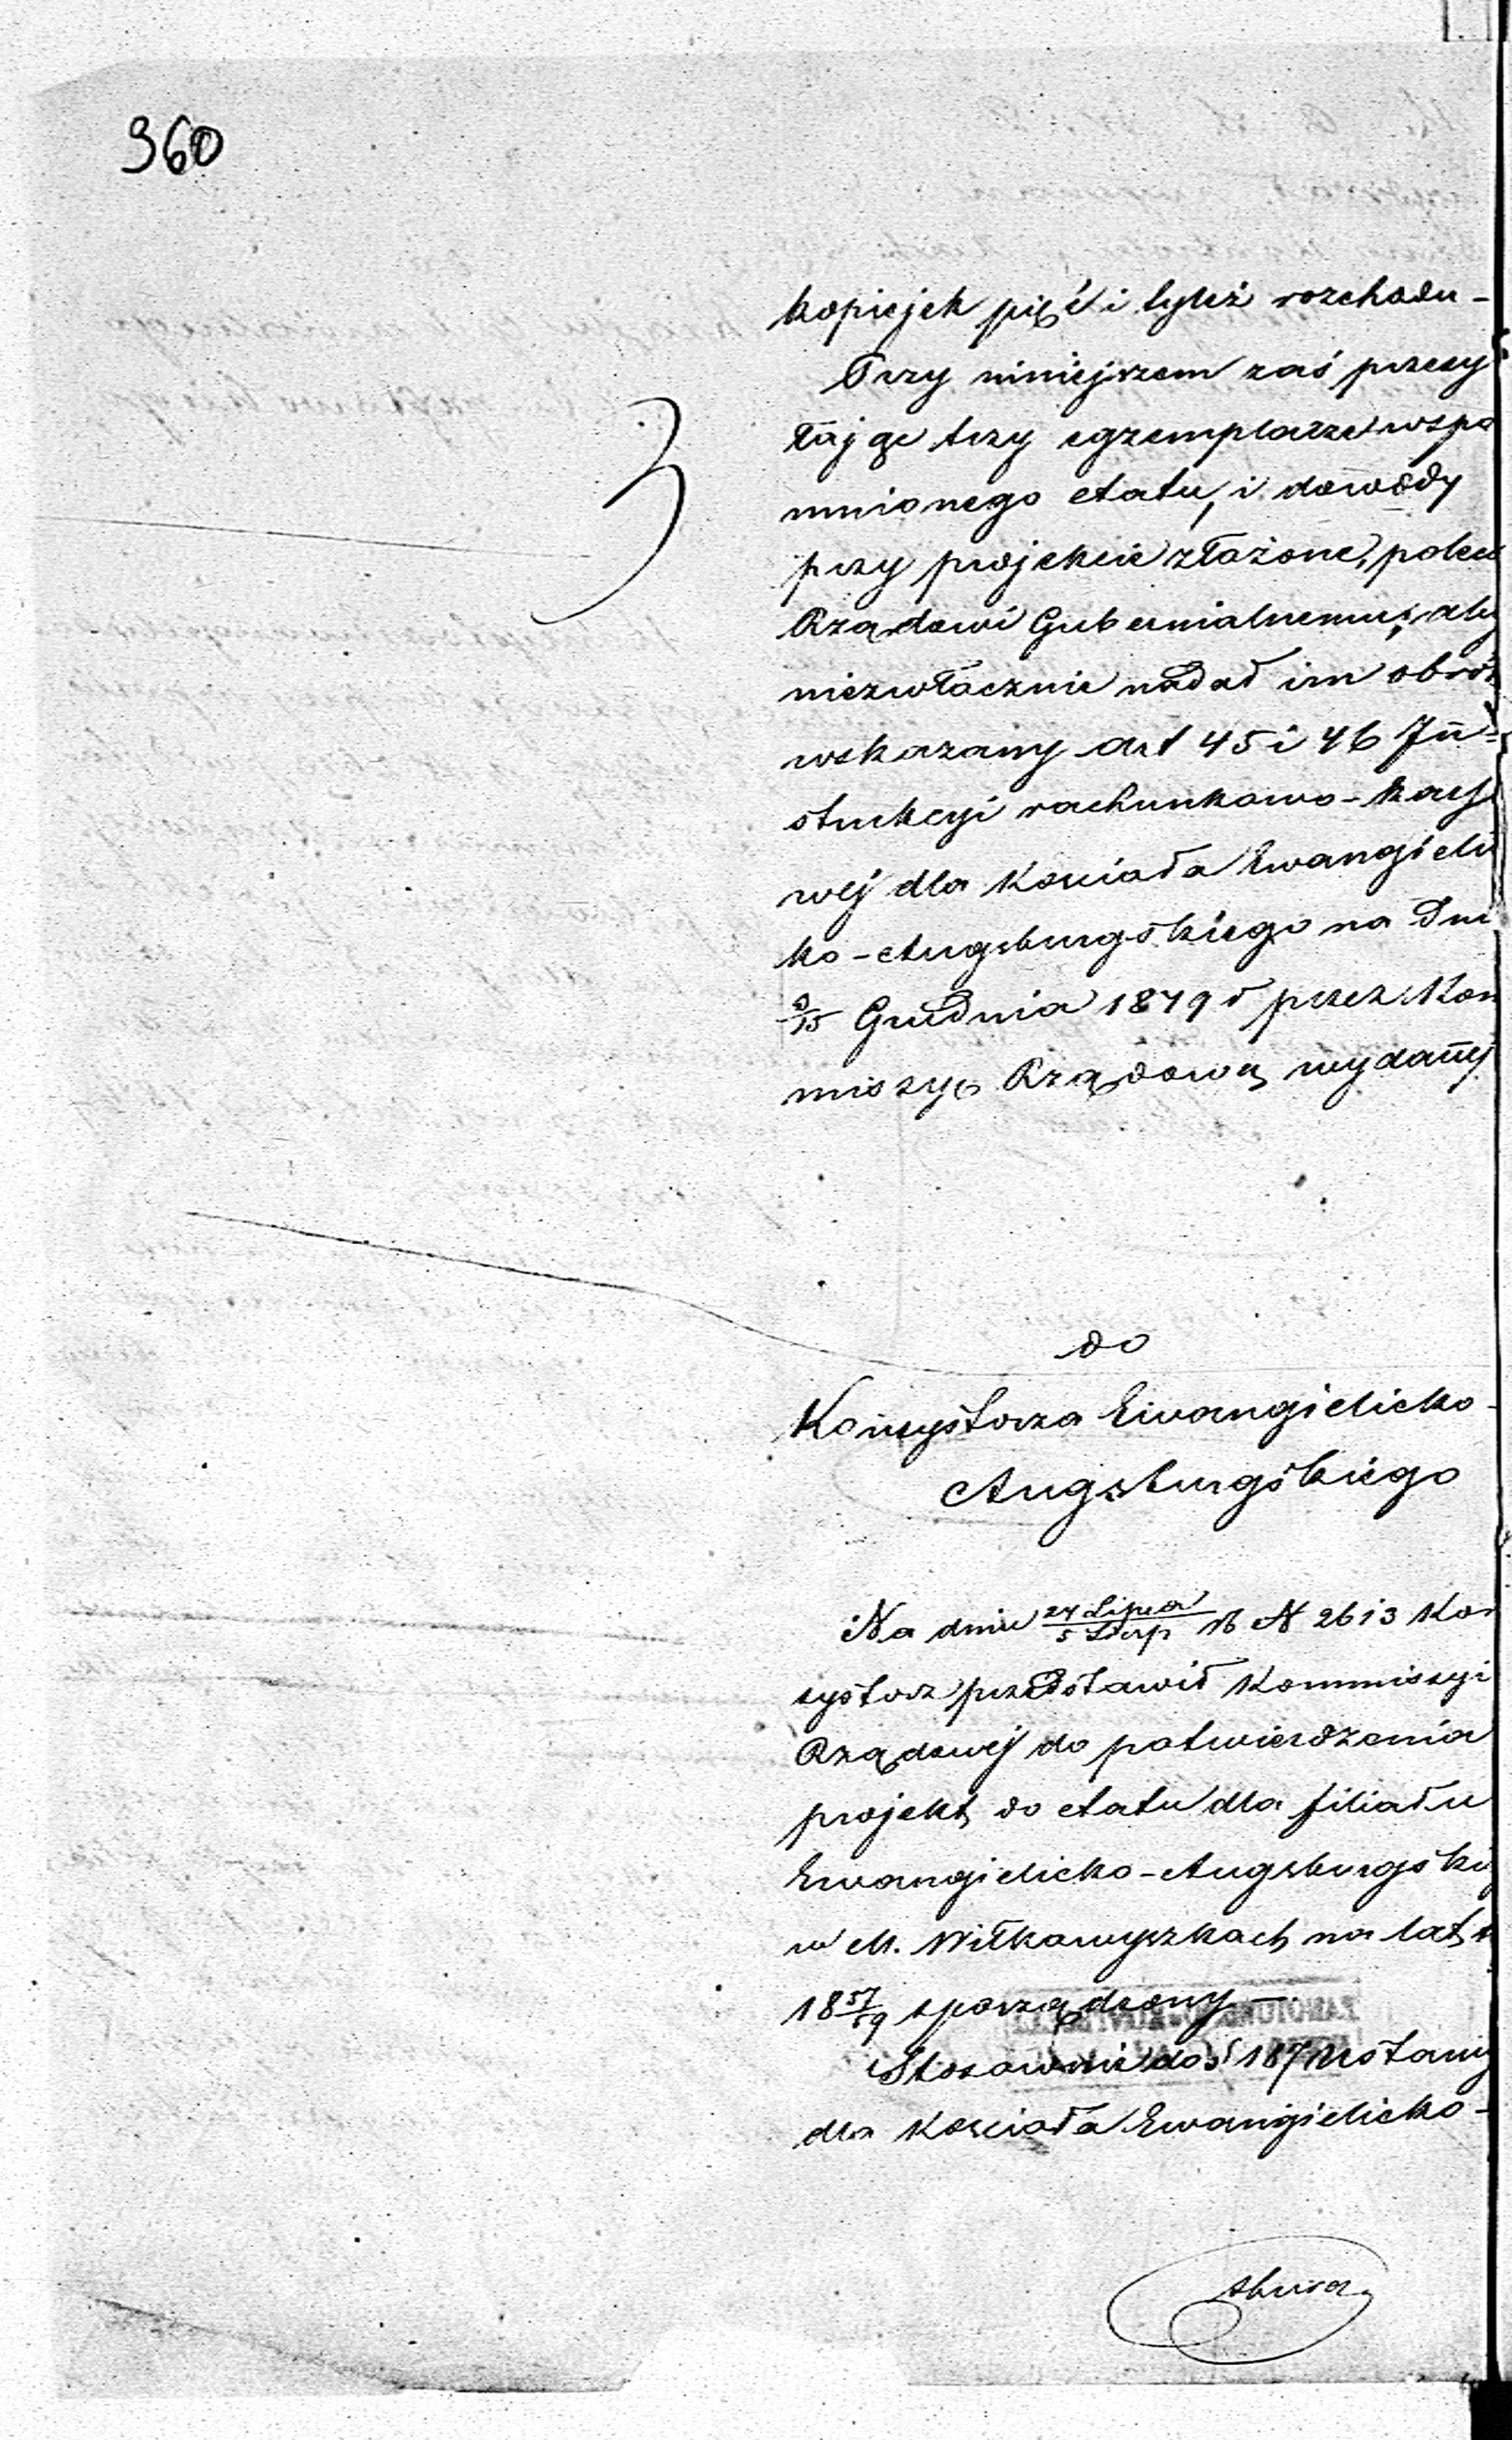 360
kopiejek pięć i tyleż rozchodu -
Przy niniejszem zaś przesy
łając trzy egzemplarze wspo
mnionego etatu, i dowody
przy projekcie złożone, poleca
Rządowi Gubernialnemu, aby
niezwłocznie nadał im obrót
wskazany art 45 i 46 In=
strukcyi rachunkowo-kass
wej dla Kościoła Ewangieli
ko-Augsburgskiego na dniu
3/15 Grudnia 1849 r przez Kom
missyę Rządową wydanej
3
do
Konsystorza Ewangielicko-
Augsburgskiego
Na dniu 24 Lipca/5 Sierp rb N 2613 Kon
systorz przedstawił Kommissyi
Rządowej do potwierdzenia
projekt do etatu dla filiału
Ewangielicko-Augsburgskieg
w M. Wiłkowyszkach na lat
18 57/59 sporządzony -
Stosownie do § 187 Ustawy
dla Kościoła Ewangielicko-